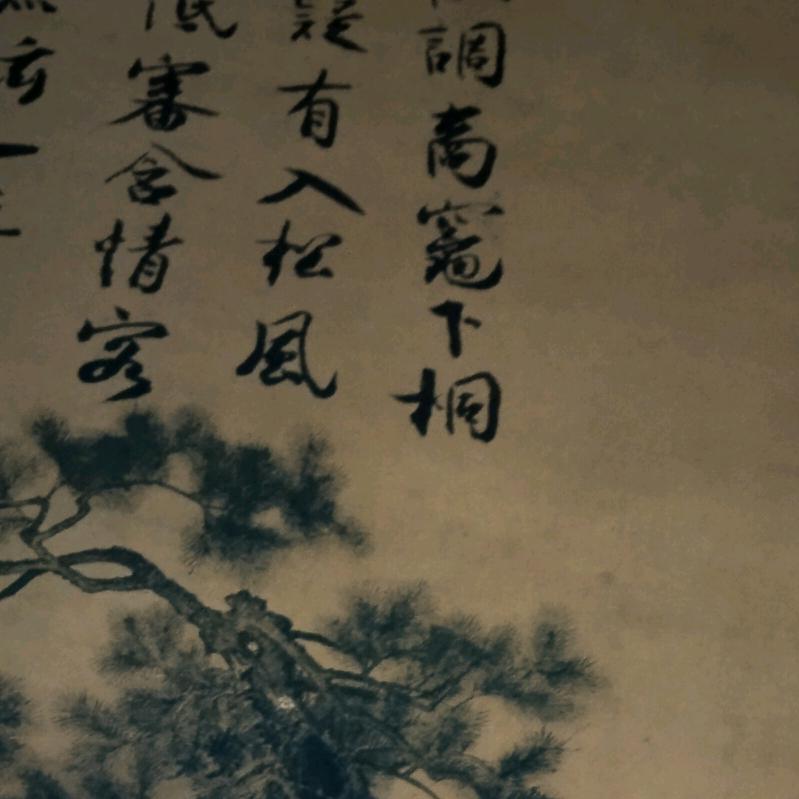 調商竈下桐
疑有入松風
低審含情客
一